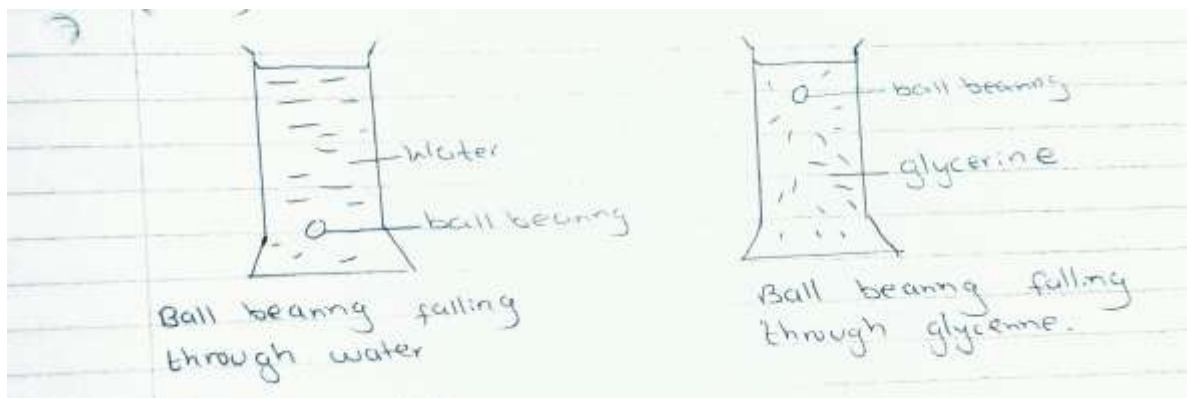 7
Water
ball bearing
Ball bearing falling
through water
ball bearing
glycerine
Ball bearing falling
through glycerine.